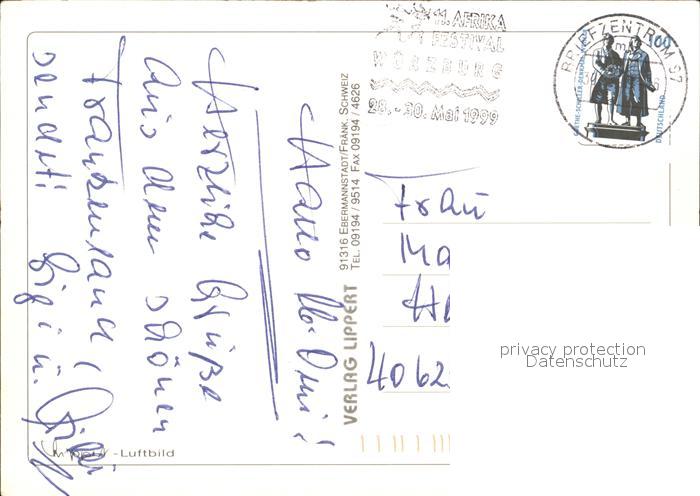 11. AFRIKA
FESTIVAL
WÜRZBURG
28.-30. Mai 1999
BRIEFZENTRUM 97
100
GOETHE-SCHILLER-DENKMAL WEIMAR
DEUTSCHLAND
Hallo
Herzliche Grüße
aus dem schönen
Frankenland
sendet!
VERLAG LIPPERT
91316 EBERMANNSTADT/FRÄNK. SCHWEIZ
TEL. 09194 / 9514 FAX 09194 / 4626
Frau
Ma
4062
privacy protection
Datenschutz
-Luftbild